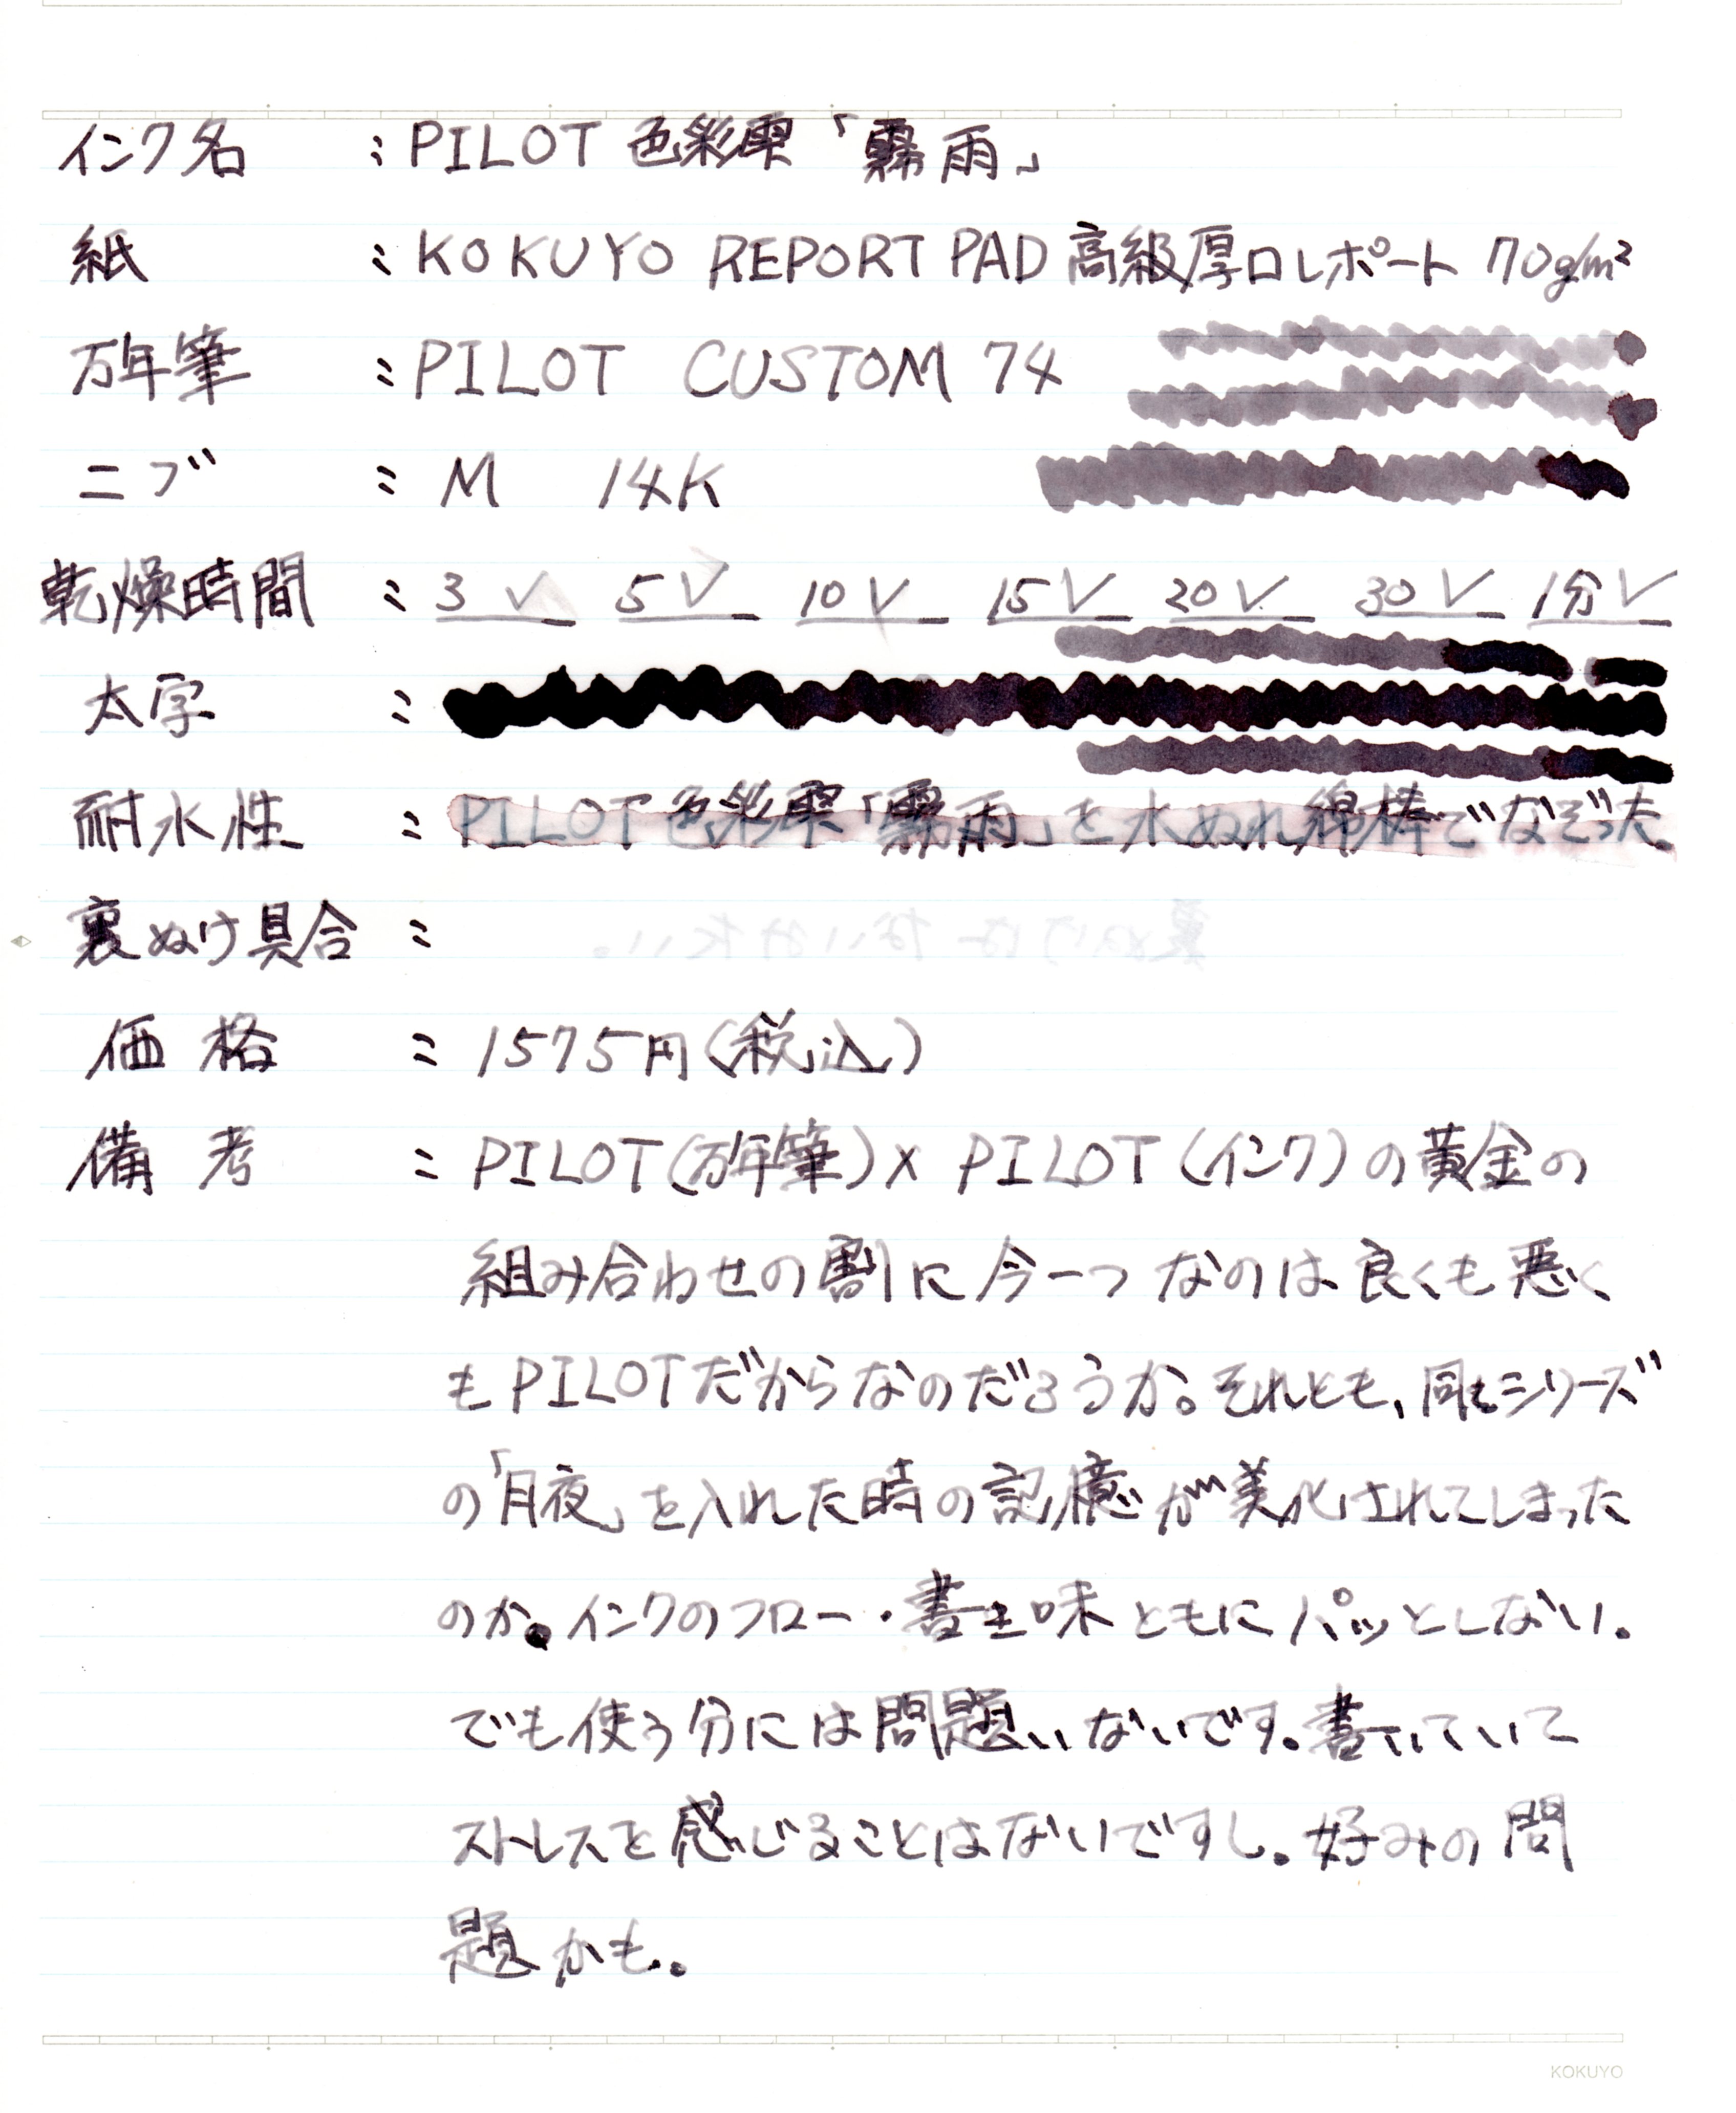 インク名 : PILOT 色彩雫「霧雨」
紙 : KOKUYO REPORT PAD 高級厚口レポート 70g/m²
万年筆 : PILOT CUSTOM 74
ニブ : M 14K
乾燥時間 : 3 ✓ 5 ✓ 10 ✓ 15 ✓ 20 ✓ 30 ✓ 1分 ✓
太字 :
耐水性 : PILOT色彩雫「霧雨」を水ぬれ綿棒でなぞった
裏ぬけ具合 : 裏ぬけはないみたい。
価格 : 1575円(税込)
備考 : PILOT(万年筆)X PILOT(インク)の黄金の
組み合わせの割に今一つなのは良くも悪く
もPILOTだからなのだろうか。それとも、同じシリーズ
の「月夜」を入れた時の記憶が美化されてしまった
のか。インクのフロー・書き味ともにパッとしない。
でも使う分には問題いないです。書いていて
ストレスを感じることはないですし。好みの問
題かも。
KOKUYO